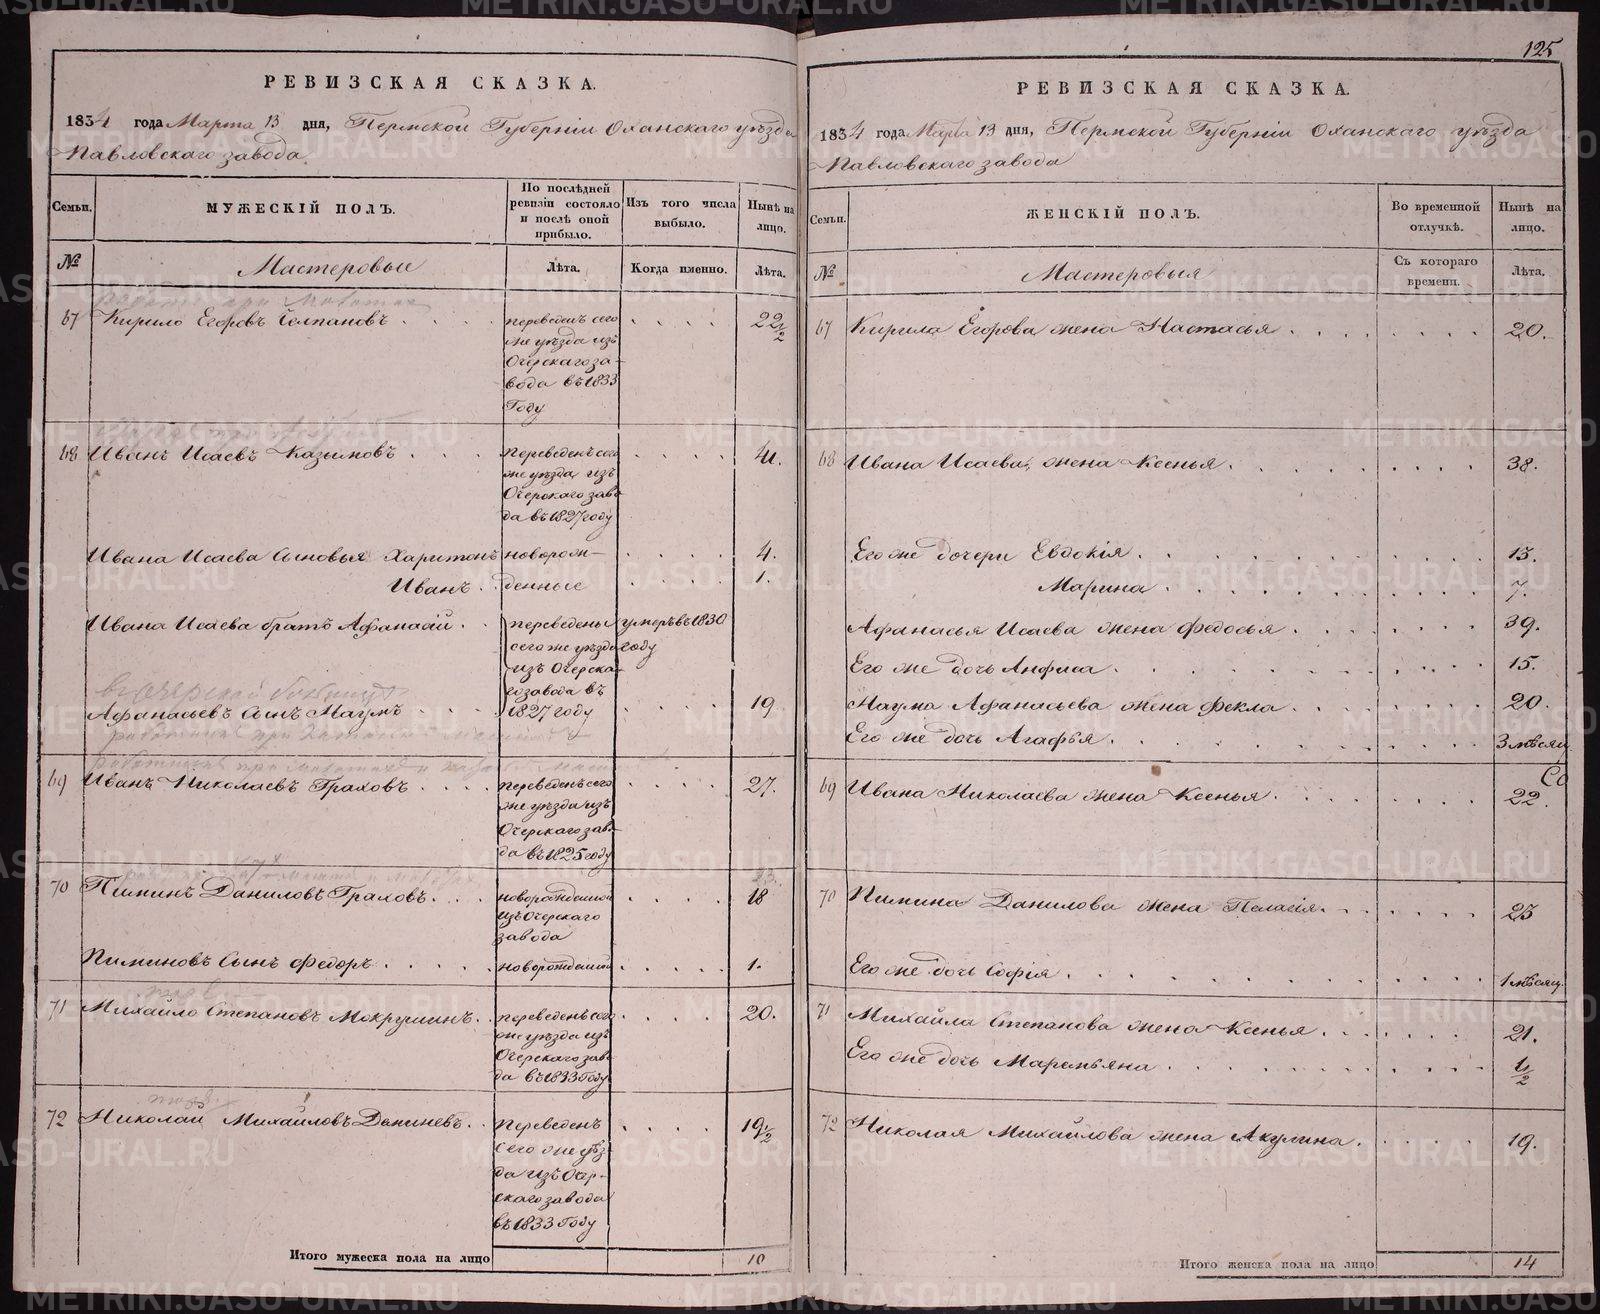 125
РЕВИЗСКАЯ СКАЗКА.
1834 года Марта 13 дня, Пермской Губерніи Оханскаго уѣзда
Павловскаго завода.
Семьи.
МУЖЕСКІЙ ПОЛЪ.
По послѣдней
ревизіи состояло
и послѣ оной
прибыло.
Изъ того числа
выбыло.
Нынѣ на
лицо.
№
Мастеровые
Лѣта.
Когда именно.
Лѣта.
67 Кирило Егоровъ Челпановъ . . . . переведенъ сего . . . . 22 1/2
же уѣзда изъ
Очерскаго за-
вода въ 1833
Году
68 Иванъ Исаевъ Казымовъ . . . переведенъ сего . . . . 41.
же уѣзда изъ
Очерскаго заво-
да въ 1827 году
Ивана Исаева Сыновья Харитонъ новорож- . . . . 4.
Иванъ . . денные . . . . 1.
Ивана Исаева братъ Афанасій . . переведены умеръ въ 1830
сего же уѣзда году
изъ Очерска-
го завода въ
Афанасьевъ Сынъ Наумъ . . . . 1827 году . . . . 19.
69 Иванъ Николаевъ Граховъ . . . . переведенъ сего . . . . 27.
же уѣзда изъ
Очерскаго заво-
да въ 1825 году
70 Пиминъ Даниловъ Граховъ . . . новорожденный . . . . 18
изъ Очерскаго
завода
Пиминовъ Сынъ Федоръ . . . . . новорожденный . . . . 1.
71 Михайло Степановъ Мокрушинъ . . переведенъ сего . . . . 20.
же уѣзда изъ
Очерскаго заво-
да въ 1833 Году
72 Николай Михайловъ . . Переведенъ . . . . 19 1/2
Сего же уѣз-
да изъ Очер-
скаго завода
въ 1833 Году
Итого мужеска пола на лицо 10
РЕВИЗСКАЯ СКАЗКА.
1834 года Марта 13 дня, Пермской Губерніи Оханскаго уѣзда
Павловскаго завода
Семьи.
ЖЕНСКІЙ ПОЛЪ.
Во временной
отлучкѣ.
Нынѣ на
лицо.
№
Мастеровыя
Съ котораго
времени.
Лѣта.
67 Кирила Егорова жена Настасья . . . . . . . . 20.
68 Ивана Исаева жена Ксенья . . . . . . . . 38.
Его же дочери Евдокія . . . . . . . . 13.
Марина . . . . . . . . 7.
Афанасья Исаева жена Федосья . . . . . . . . 39.
Его же дочь Анфиса . . . . . . . . 15.
Наума Афанасьева жена Фекла . . . . . . . . 20.
Его же дочь Агафья . . . . . . . . 3 мѣсяц.
69 Ивана Николаева жена Ксенья . . . . . . . . 22.
70 Пимина Данилова жена Пелагія . . . . . . . . 23
Его же дочь Софія . . . . . . . . 1 мѣсяц.
71 Михайла Степанова жена Ксенья . . . . . . . . 21.
Его же дочь Маремьяна . . . . . . . . 1/2
72 Николая Михайлова жена Акулина . . . . . . 19.
Итого женска пола на лицо 14
METRIKI.GASO-URAL.RU